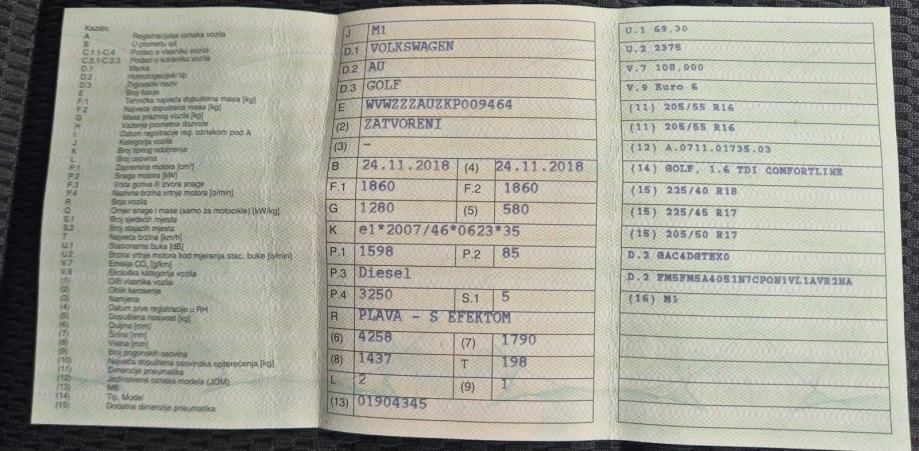 Kazalo:
A Registracijska oznaka vozila
B U prometu od
C.1.1-C.4 Podaci o vlasniku vozila
C.3.1-C.3.3 Podaci o korisniku vozila
D.1 Marka
D.2 Homologacijski tip
D.3
E Broj šasije
F.1 Tehnička najveća dopuštena masa [kg]
F.2 Najveća dopuštena masa [kg]
G Masa praznog vozila [kg]
H Važenje prometne dozvole
I Datum registracije reg. oznakom pod A
J Kategorija vozila
K Broj tipnog odobrenja
L Broj osovina
P.1 Zapremina motora [cm³]
P.2 Snaga motora [kW]
P.3 Vrsta goriva ili izvora snage
P.4 Nazivna brzina vrtnje motora [o/min]
R Boja vozila
Q Omjer snage i mase (samo za motocikle) [kW/kg]
S.1 Broj sjedećih mjesta
S.2 Broj stajaćih mjesta
T Najveća brzina [km/h]
U.1 Stacionarna buka [dB]
U.2 Brzina vrtnje motora kod mjerenja stac. buke [o/min]
V.7 Emisija CO₂ [g/km]
V.9 Ekološka kategorija vozila
(1) OIB vlasnika vozila
(2) Oblik karoserije
(3) Namjena
(4) Datum prve registracije u RH
(5) Dopuštena nosivost [kg]
(6) Duljina [mm]
(7) Širina [mm]
(8) Visina [mm]
(9) Broj pogonskih osovina
(10) Najveća dopuštena osovinska opterećenja [kg]
(11) Dimenzije pneumatika
(12) Jedinstvena oznaka modela (JOM)
(13) MB
(14) Tip, Model
(15) Dodatne dimenzije pneumatika
J M1
D.1 VOLKSWAGEN
D.2 AU
D.3 GOLF
E WVWZZZAUZKP009464
(2) ZATVORENI
(3) –
B 24.11.2018 (4) 24.11.2018
F.1 1860 F.2 1860
G 1280 (5) 580
K e1*2007/46*0623*35
P.1 1598 P.2 85
P.3 Diesel
P.4 3250 S.1 5
R PLAVA - S EFEKTOM
(6) 4258 (7) 1790
(8) 1437 T 198
L 2 (9) 1
(13) 01904345
U.1 69,30
U.2 2375
V.7 108,000
V.9 Euro 6
(11) 205/55 R16
(11) 205/55 R16
(12) A.0711.01735.03
(14) GOLF, 1.6 TDI COMFORTLINE
(15) 225/40 R18
(15) 225/45 R17
(15) 205/50 R17
D.2 GAC4DGTEX0
D.2 FM5FM5A4051N7CPON1VL1AVR2NA
(16) M1